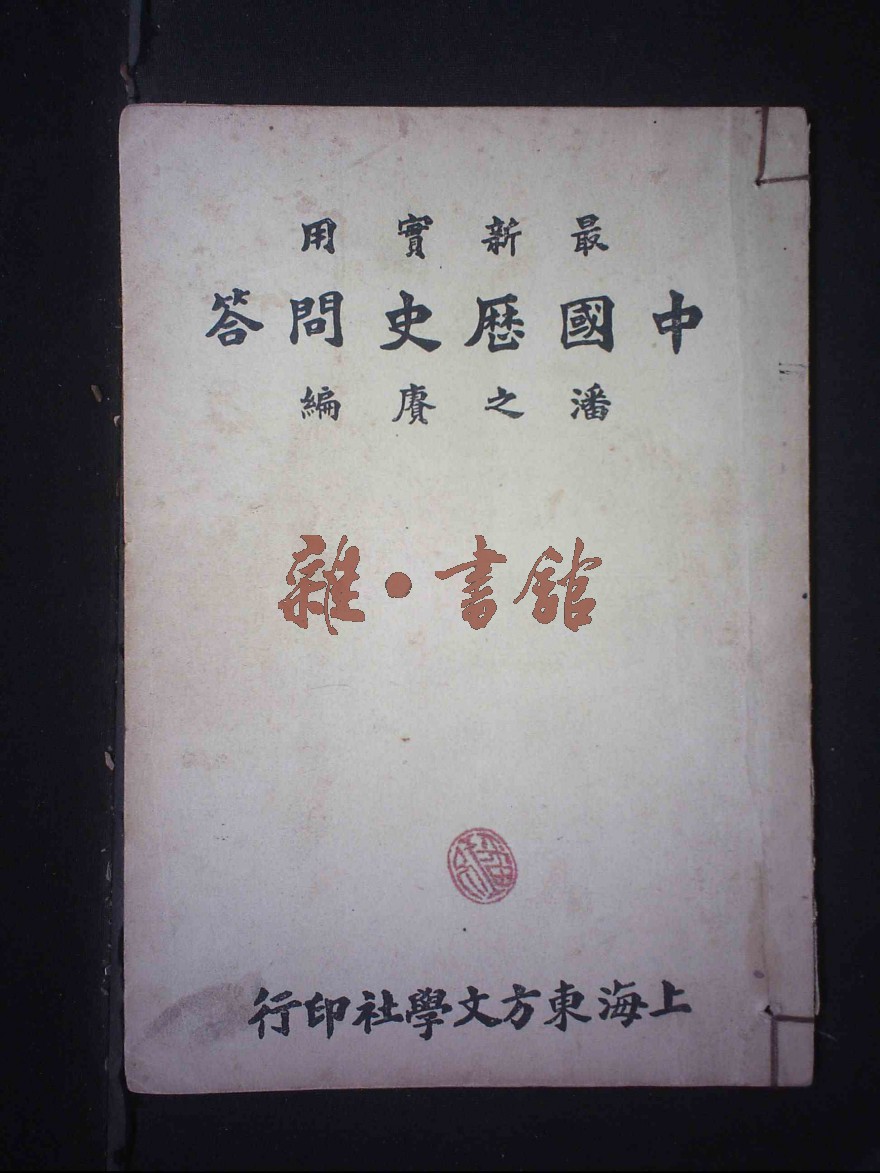 最新實用
中國歷史問答
潘之賡編
雜·書館
上海東方文學社印行